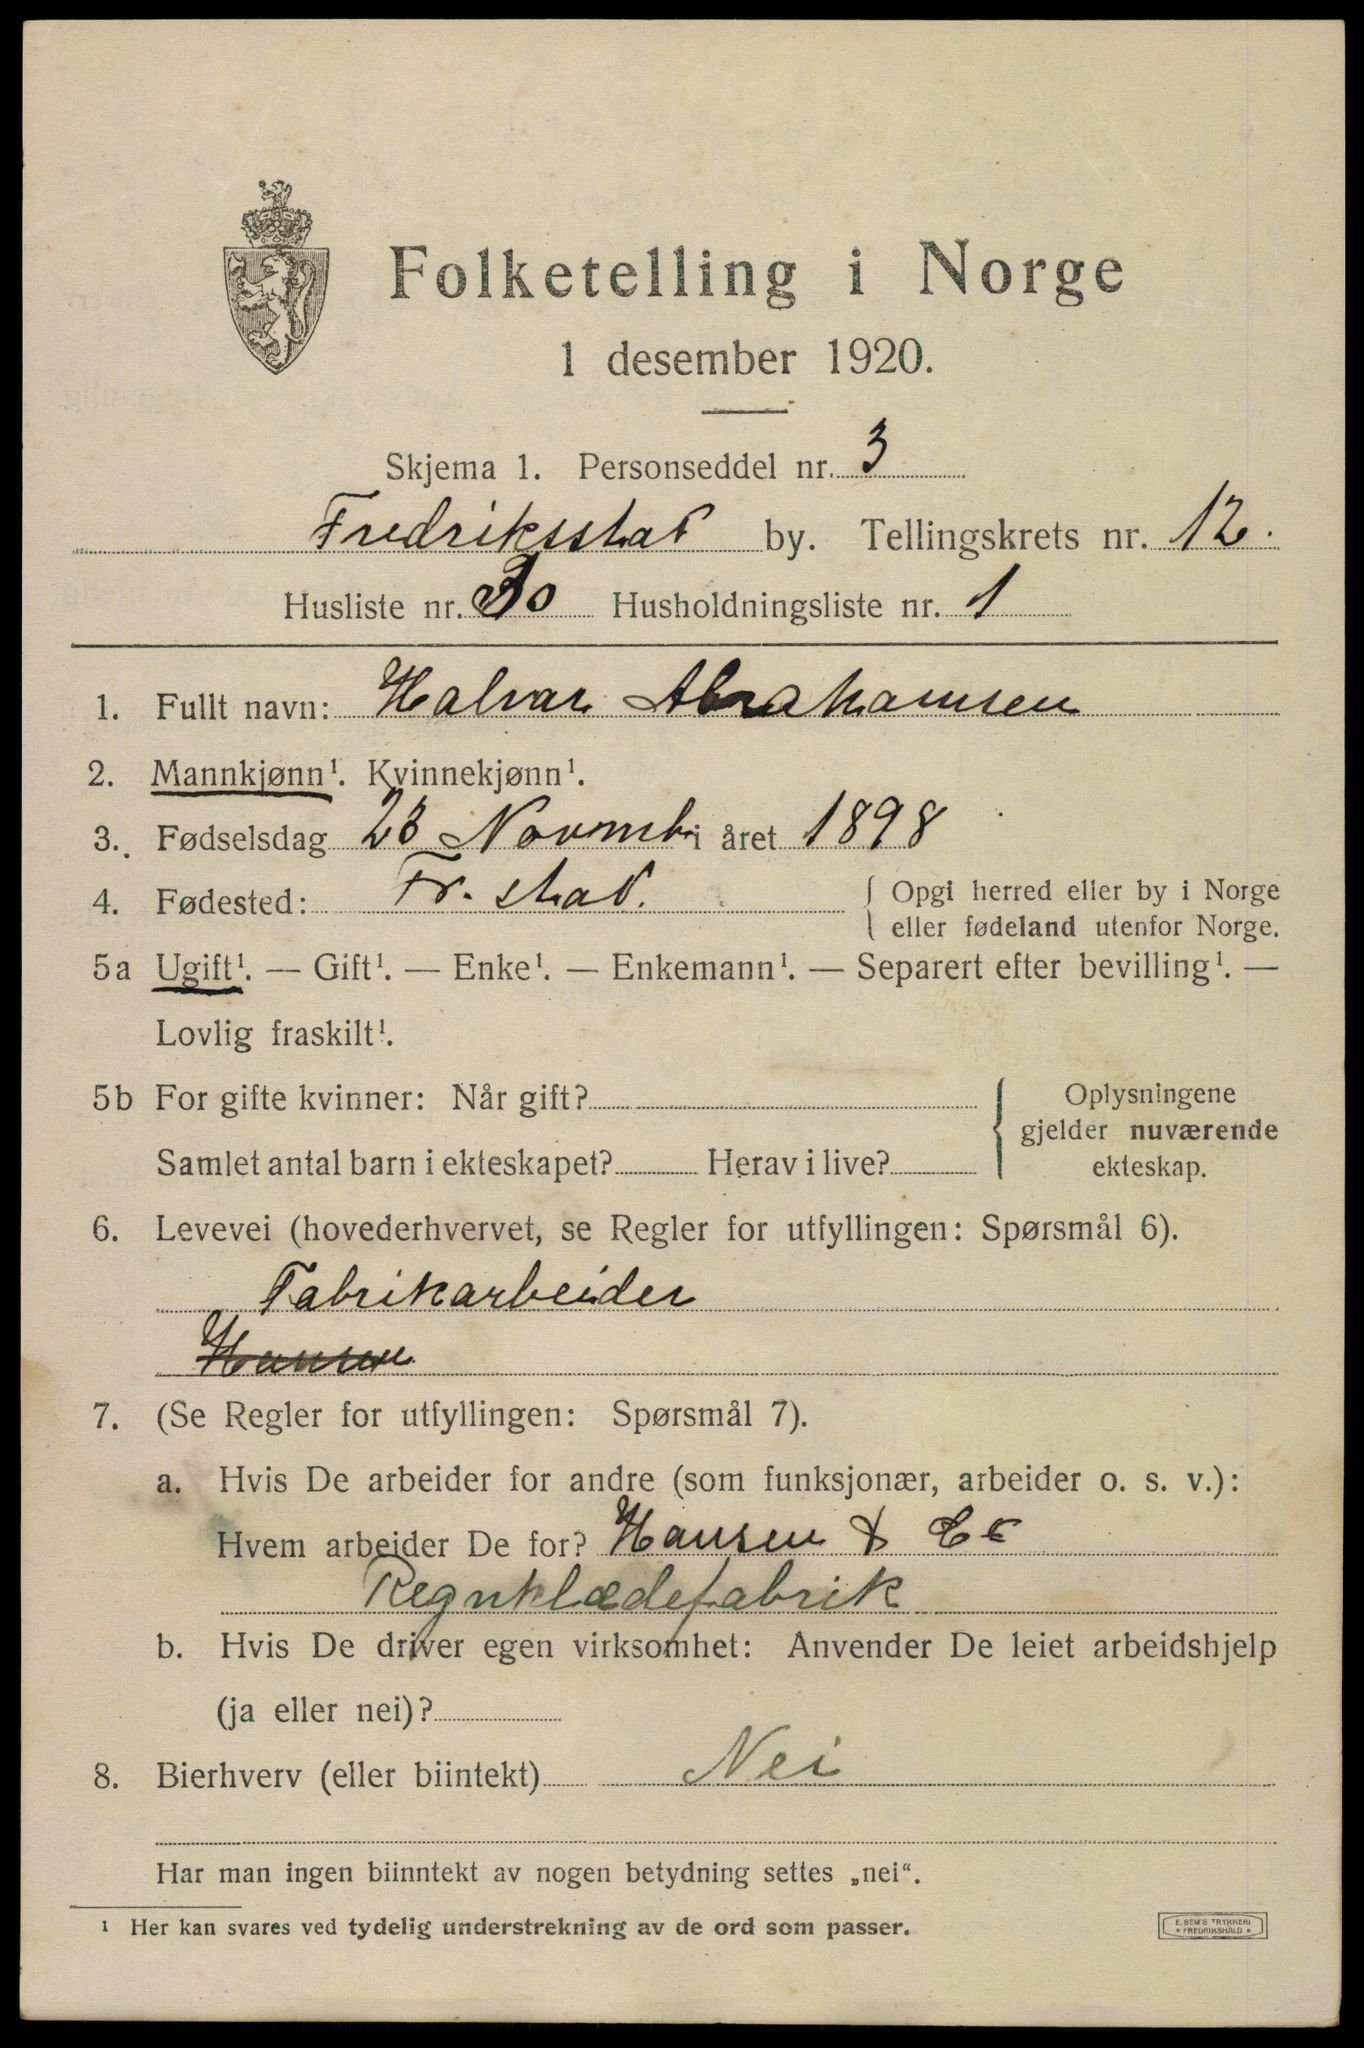 Folketelling i Norge
1 desember 1920.
Skjema 1. Personseddel nr. 3
Fredriksstad by. Tellingskrets nr. 12.
Husliste nr. 30 Husholdningsliste nr. 1
1. Fullt navn: Halvar Abrahamsen
2. Mannkjønn¹. Kvinnekjønn¹.
3. Fødselsdag 23 Novmb i året 1898
4. Fødested: Fr.stad. { Opgi herred eller by i Norge
eller fødeland utenfor Norge.
5a Ugift¹. — Gift¹. — Enke¹. — Enkemann¹. — Separert efter bevilling¹. —
Lovlig fraskilt¹.
5b For gifte kvinner: Når gift? { Oplysningene
gjelder nuværende
Samlet antal barn i ekteskapet? Herav i live? ekteskap.
6. Levevei (hovederhvervet, se Regler for utfyllingen: Spørsmål 6).
Fabrikarbeider
Hansen
7. (Se Regler for utfyllingen: Spørsmål 7).
a. Hvis De arbeider for andre (som funksjonær, arbeider o. s. v.):
Hvem arbeider De for? Hansen & Co
Regnklædefabrik
b. Hvis De driver egen virksomhet: Anvender De leiet arbeidshjelp
(ja eller nei)?
8. Bierhverv (eller biintekt) Nei
Har man ingen biinntekt av nogen betydning settes „nei“.
¹ Her kan svares ved tydelig understrekning av de ord som passer.
E. SEM'S TRYKKERI
* FREDRIKSHALD *